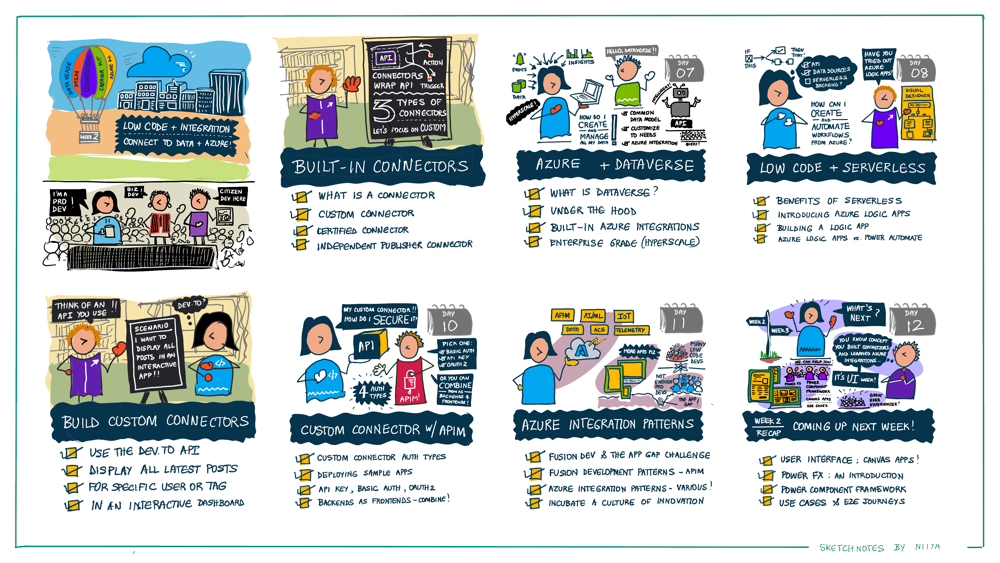 DATAVERSE
AZURE ++
WEEK 2
LOW CODE + INTEGRATION
CONNECT TO DATA + AZURE!
I'M A
PRO
DEV
BIZ
DEV
CITIZEN
DEV HERE
API
ACTION
CONNECTORS
WRAP API
TRIGGER
3 TYPES OF
CONNECTORS
LET'S FOCUS ON CUSTOM
BUILT-IN CONNECTORS
WHAT IS A CONNECTOR
CUSTOM CONNECTOR
CERTIFIED CONNECTOR
INDEPENDENT PUBLISHER CONNECTOR
EVENTS
INSIGHTS
DATA
HYPERSCALE!
HELLO, DATAVERSE!!
DAY
07
HOW DO I
CREATE
AND
MANAGE
ALL MY DATA
API
COMMON
DATA MODEL
CUSTOMIZE
TO NEEDS
AZURE INTEGRATION
AZURE + DATAVERSE
WHAT IS DATAVERSE?
UNDER THE HOOD
BUILT-IN AZURE INTEGRATIONS
ENTERPRISE GRADE (HYPERSCALE)
IF
THIS
THEN
THAT
API
DATA SOURCES
SERVERLESS
BACKENDS?
HAVE YOU
TRIED OUT
AZURE
LOGIC APPS?
DAY
08
HOW CAN I
CREATE
AND
AUTOMATE
WORKFLOWS
FROM AZURE?
VISUAL
DESIGNER
LOW CODE + SERVERLESS
BENEFITS OF SERVERLESS
INTRODUCING AZURE LOGIC APPS
BUILDING A LOGIC APP
AZURE LOGIC APPS vs. POWER AUTOMATE
THINK OF AN
API YOU USE!!
DEV.TO?
SCENARIO
I WANT TO
DISPLAY ALL
POSTS IN AN
INTERACTIVE
APP!!
BUILD CUSTOM CONNECTORS
USE THE DEV.TO API
DISPLAY ALL LATEST POSTS
FOR SPECIFIC USER OR TAG
IN AN INTERACTIVE DASHBOARD
MY CUSTOM CONNECTOR!!
HOW DO I SECURE IT?
DAY
10
API
4 AUTH
TYPES
APIM!
PICK ONE:
BASIC AUTH
API KEY
OAUTH 2
OR YOU CAN
COMBINE
BACKENDS &
FRONTENDS!
CUSTOM CONNECTOR W/ APIM
CUSTOM CONNECTOR AUTH TYPES
DEPLOYING SAMPLE APPS
API KEY, BASIC AUTH, OAUTH2
BACKENDS AS FRONTENDS - COMBINE!
APIM
AI/ML
IOT
DATA
ACS
TELEMETRY
DAY
11
A
MORE APPS PLZ
MANY
LOW
CODE
DEVS
NOT
ENOUGH
PRO
DEVS
THE APP
GAP
AZURE INTEGRATION PATTERNS
FUSION DEV & THE APP GAP CHALLENGE
FUSION DEVELOPMENT PATTERNS - APIM
AZURE INTEGRATION PATTERNS - VARIOUS!
INCUBATE A CULTURE OF INNOVATION
WEEK 2
WEEK 3
WHAT'S
NEXT?
DAY
12
YOU KNOW CONCEPTS
YOU BUILT CONNECTORS
AND LEARNED AZURE
INTEGRATIONS
IT'S UI WEEK!
WE CAN HELP YOU
POWER FX
POWER
COMPONENT
FRAMEWORK
CANVAS APPS
USE CASES
GREAT
USER
EXPERIENCES!
WEEK 2
RECAP
COMING UP NEXT WEEK!
USER INTERFACE : CANVAS APPS!
POWER FX : AN INTRODUCTION
POWER COMPONENT FRAMEWORK
USE CASES & E2E JOURNEYS
SKETCHNOTES BY NITYA